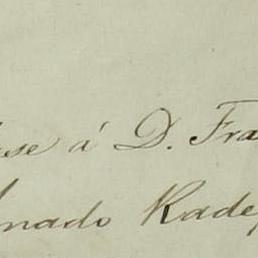 se á D. Fra
nado Kade